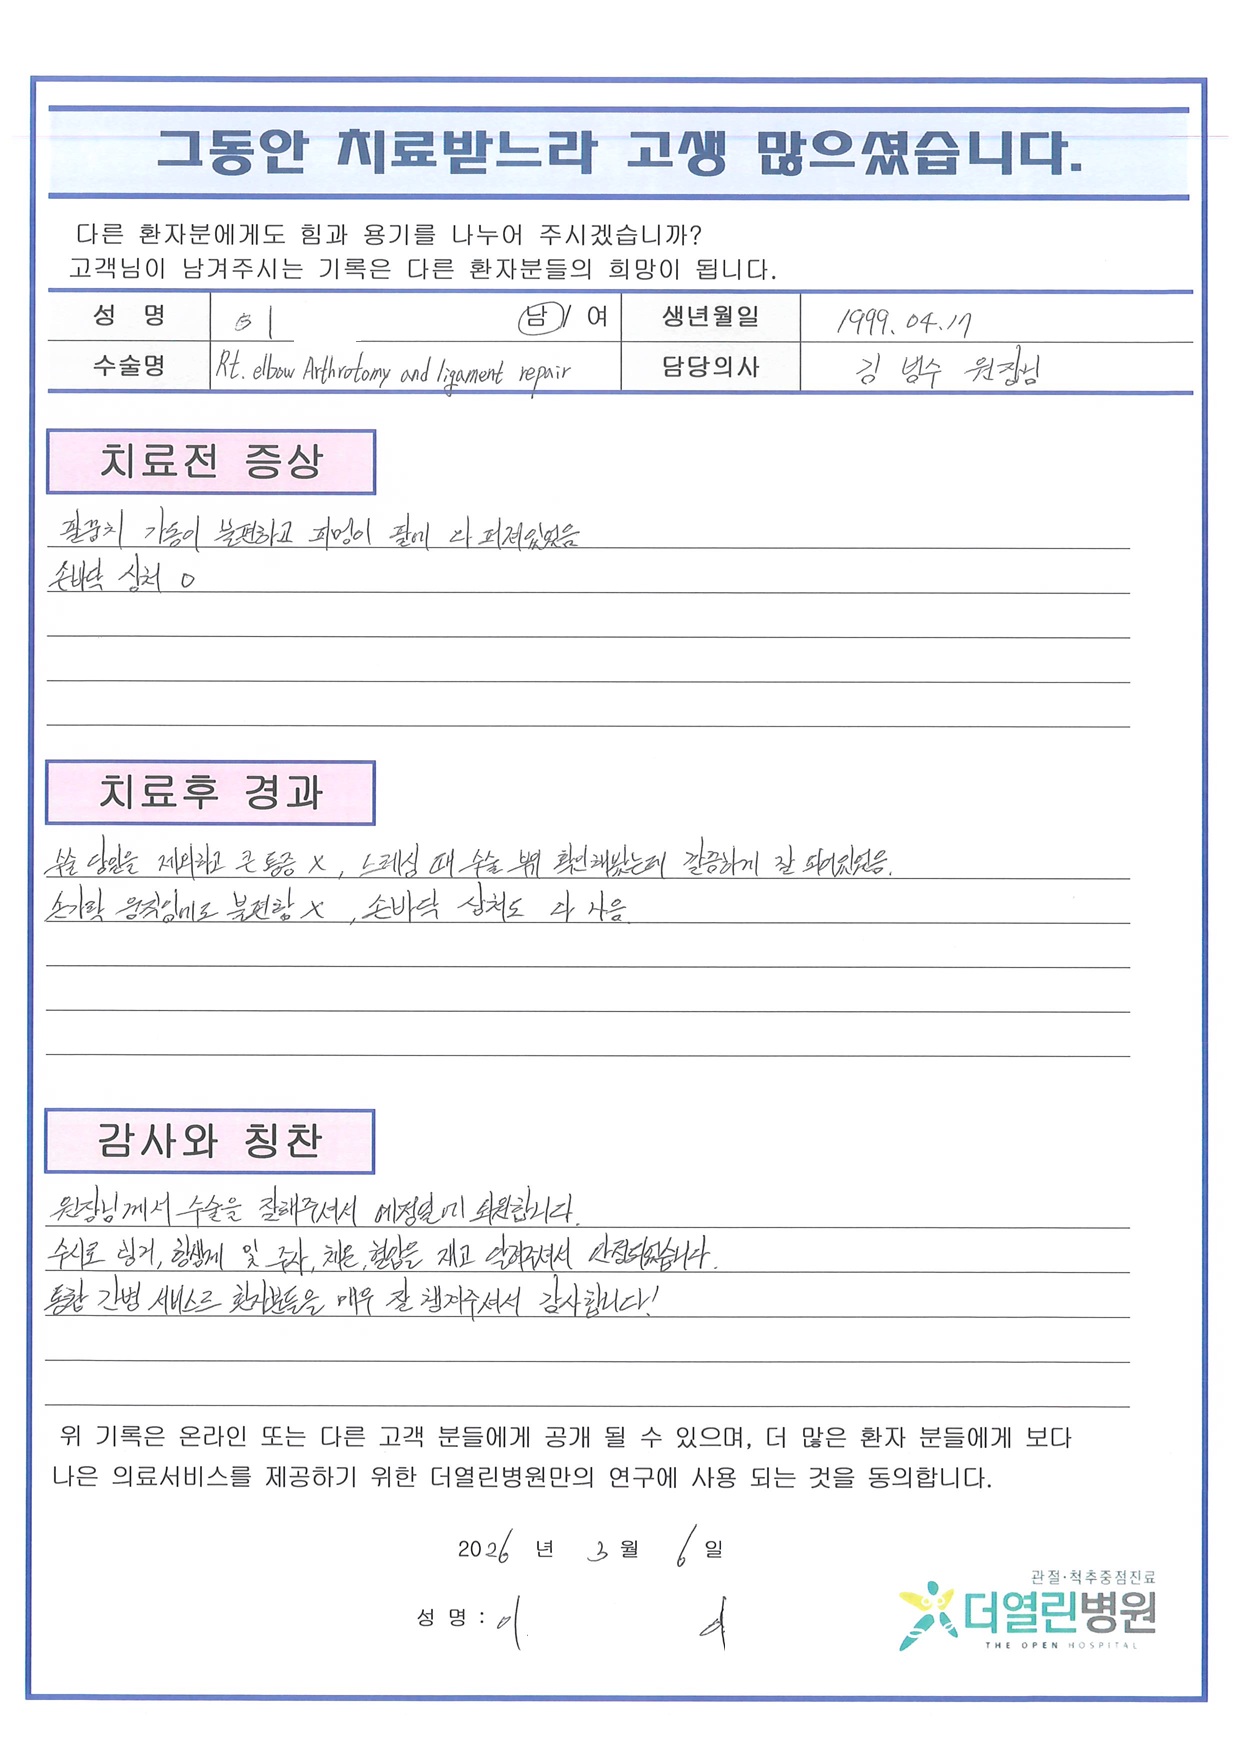 그동안 치료받느라 고생 많으셨습니다.
다른 환자분에게도 힘과 용기를 나누어 주시겠습니까?
고객님이 남겨주시는 기록은 다른 환자분들의 희망이 됩니다.
성 명 이 남 / 여 생년월일 1999. 04. 17
수술명 Rt. elbow Arthrotomy and ligament repair 담당의사 김 범수 원장님
치료전 증상
팔꿈치 가동이 불편하고 피멍이 팔에 다 퍼져있었음
손바닥 상처 O
치료후 경과
수술 당일을 제외하고 큰 통증 X, 드레싱 때 수술 부위 확인해봤는데 깔끔하게 잘 되어있었음.
손가락 움직임에도 불편함 X, 손바닥 상처도 다 나음.
감사와 칭찬
원장님께서 수술을 잘해주셔서 예정일에 퇴원합니다.
수시로 링거, 항생제 및 주사, 체온, 혈압을 재고 알려주셔서 안정되었습니다.
통합 간병 서비스로 환자분들을 매우 잘 챙겨주셔서 감사합니다!
위 기록은 온라인 또는 다른 고객 분들에게 공개 될 수 있으며, 더 많은 환자 분들에게 보다
나은 의료서비스를 제공하기 위한 더열린병원만의 연구에 사용 되는 것을 동의합니다.
2026 년 3 월 6 일
성 명 : 이
관절·척추중점진료
더열린병원
THE OPEN HOSPITAL